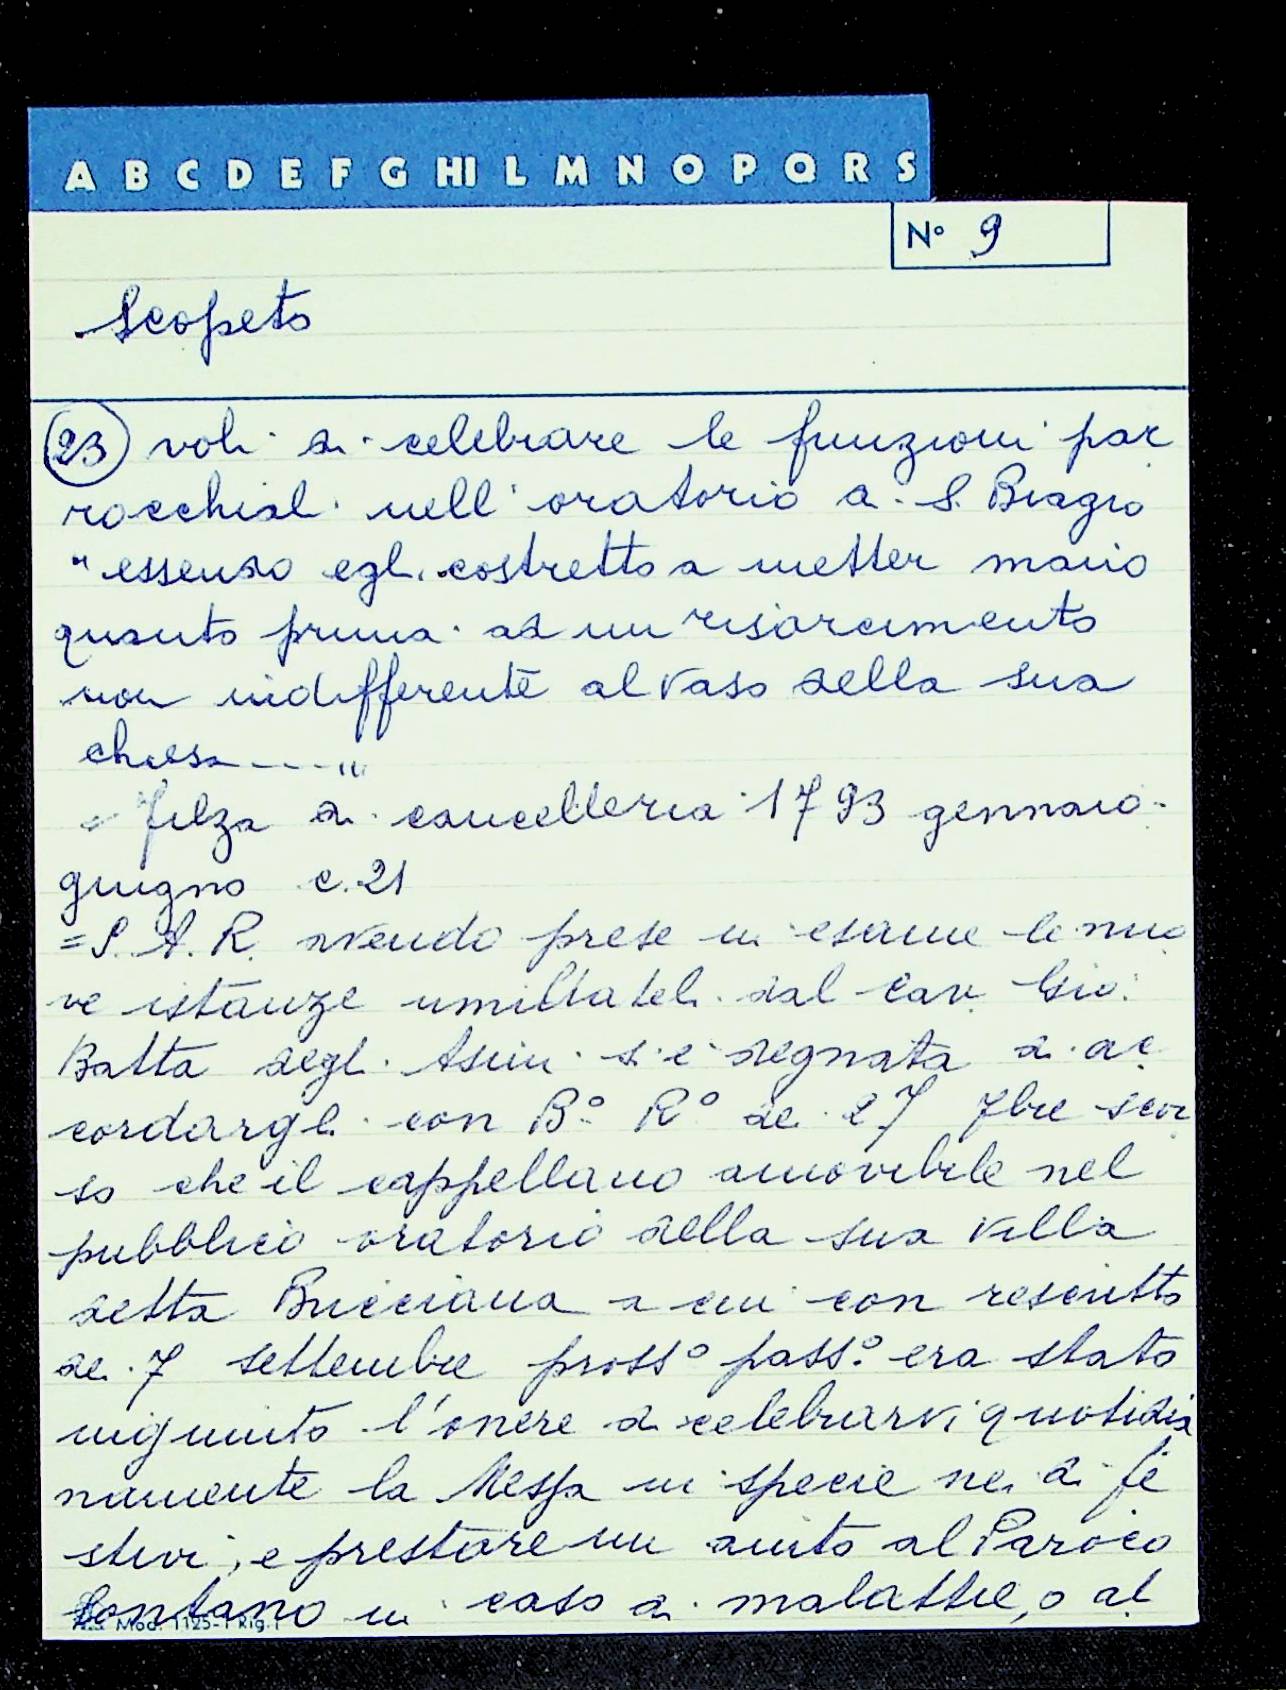 A B C D E F G HI L M N O P Q R S
N° 9
Scopeto
23 voli di celebrare le funzioni par
rocchiali nell'oratorio di S. Biagio
"essendo egli costretto a metter mano
quanto prima ad un risarcimento
non indifferente al vaso della sua
chiesa ---"
= Filza di cancelleria 1793 gennaio-
giugno c. 21
= S. A. R. avendo prese in esame le nuo
ve istanze umiliateli dal Cav. Gio:
Batta degli Asini si è degnata di ac
cordargli con B.° R.° de 27 7bre scor
so che il cappellano amovibile nel
pubblico oratorio della sua villa
detta Bucciana a cui con rescritto
de 7 settembre pross° pass.° era stato
ingiunto l'onere di celebrarvi quotidia
namente la Messa in specie nei dì fe
stivi, e prestare un aiuto al Paroco
lontano in caso di malattie, o al
Mod. 1125-1 Rig.1